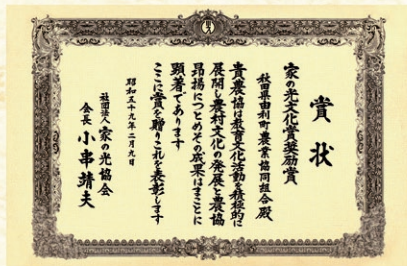 賞状
家の光文化賞奨励賞
秋田県由利町農業協同組合殿
貴農協は教育文化活動を積極的に
展開し農村文化の発展と農協
昂揚につとめその成果はまことに
顕著であります
ここに賞を贈りこれを表彰します
昭和五十九年二月九日
社団法人 家の光協会
会長 小串靖夫